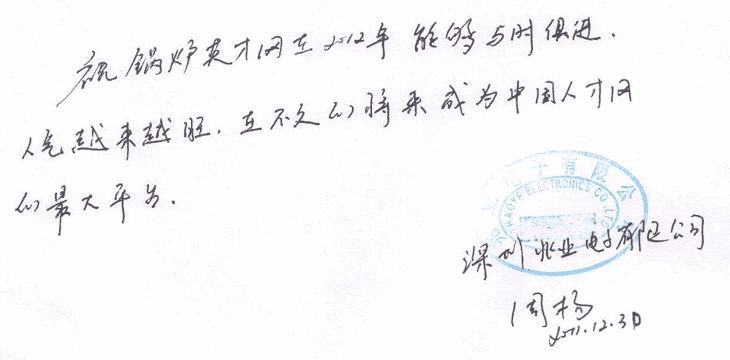 祝锅炉英才网在2012年能够与时俱进.
人气越来越旺.在不久的将来成为中国人才网
的最大平台.
电子有限公
HAOYE ELECTRONICS CO.,LTD
深圳兆业电子有限公司
周杨
2011.12.30